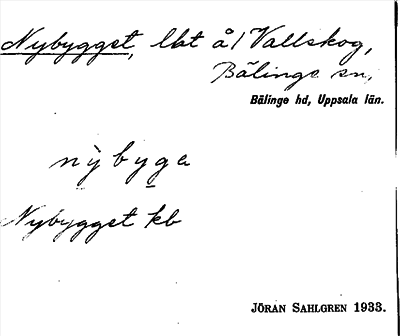 Nybygget, lht å/ Vallskog,
Bälinge sn,
Bälinge hd, Uppsala län.
nỳbyga
Nybygget kb
JÖRAN SAHLGREN 1933.